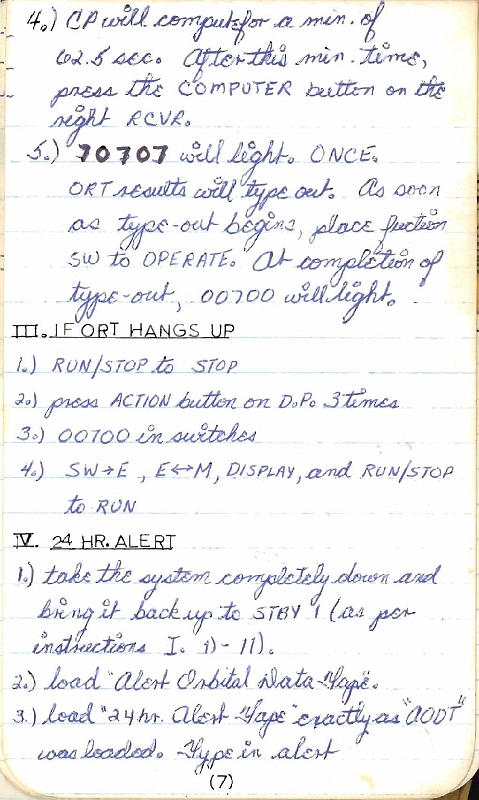 4.) CP will compute for a min. of
62.5 sec. After this min. time,
press the COMPUTER button on the
right RCVR.
5.) 70707 will light. ONCE.
ORT results will type out. As soon
as type-out begins, place fuction
SW to OPERATE. At completion of
type-out, 00700 will light.
III. IF ORT HANGS UP
1.) RUN/STOP to STOP
2.) press ACTION button on D.P. 3 times
3.) 00700 in switches
4.) SW→E, E↔M, DISPLAY, and RUN/STOP
to RUN
IV. 24 HR. ALERT
1.) take the system completely down and
bring it back up to STBY 1 (as per
instructions I. 1)-11).
2.) load "Alert Orbital Data Tape".
3.) load "24 hr. Alert Tape" exactly as "AODT"
was loaded. Type in alert
(7)